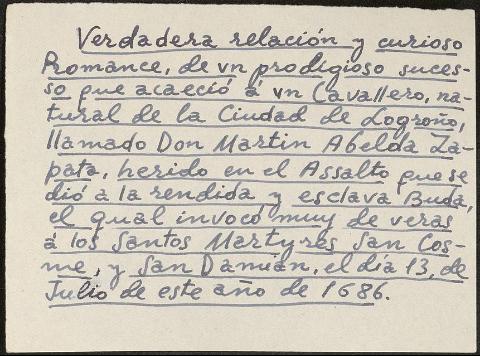 Verdadera relación y curioso
Romance, de vn prodigioso suces-
so que acaeció á vn Cavallero, na-
tural de la Ciudad de Logroño,
llamado Don Martin Abelda Za-
pata, herido en el Assalto que se
dió a la rendida y esclava Buda,
el qual invocó muy de veras
á los Santos Martyres San Cos-
me, y San Damian, el día 13, de
Julio de este año de 1686.